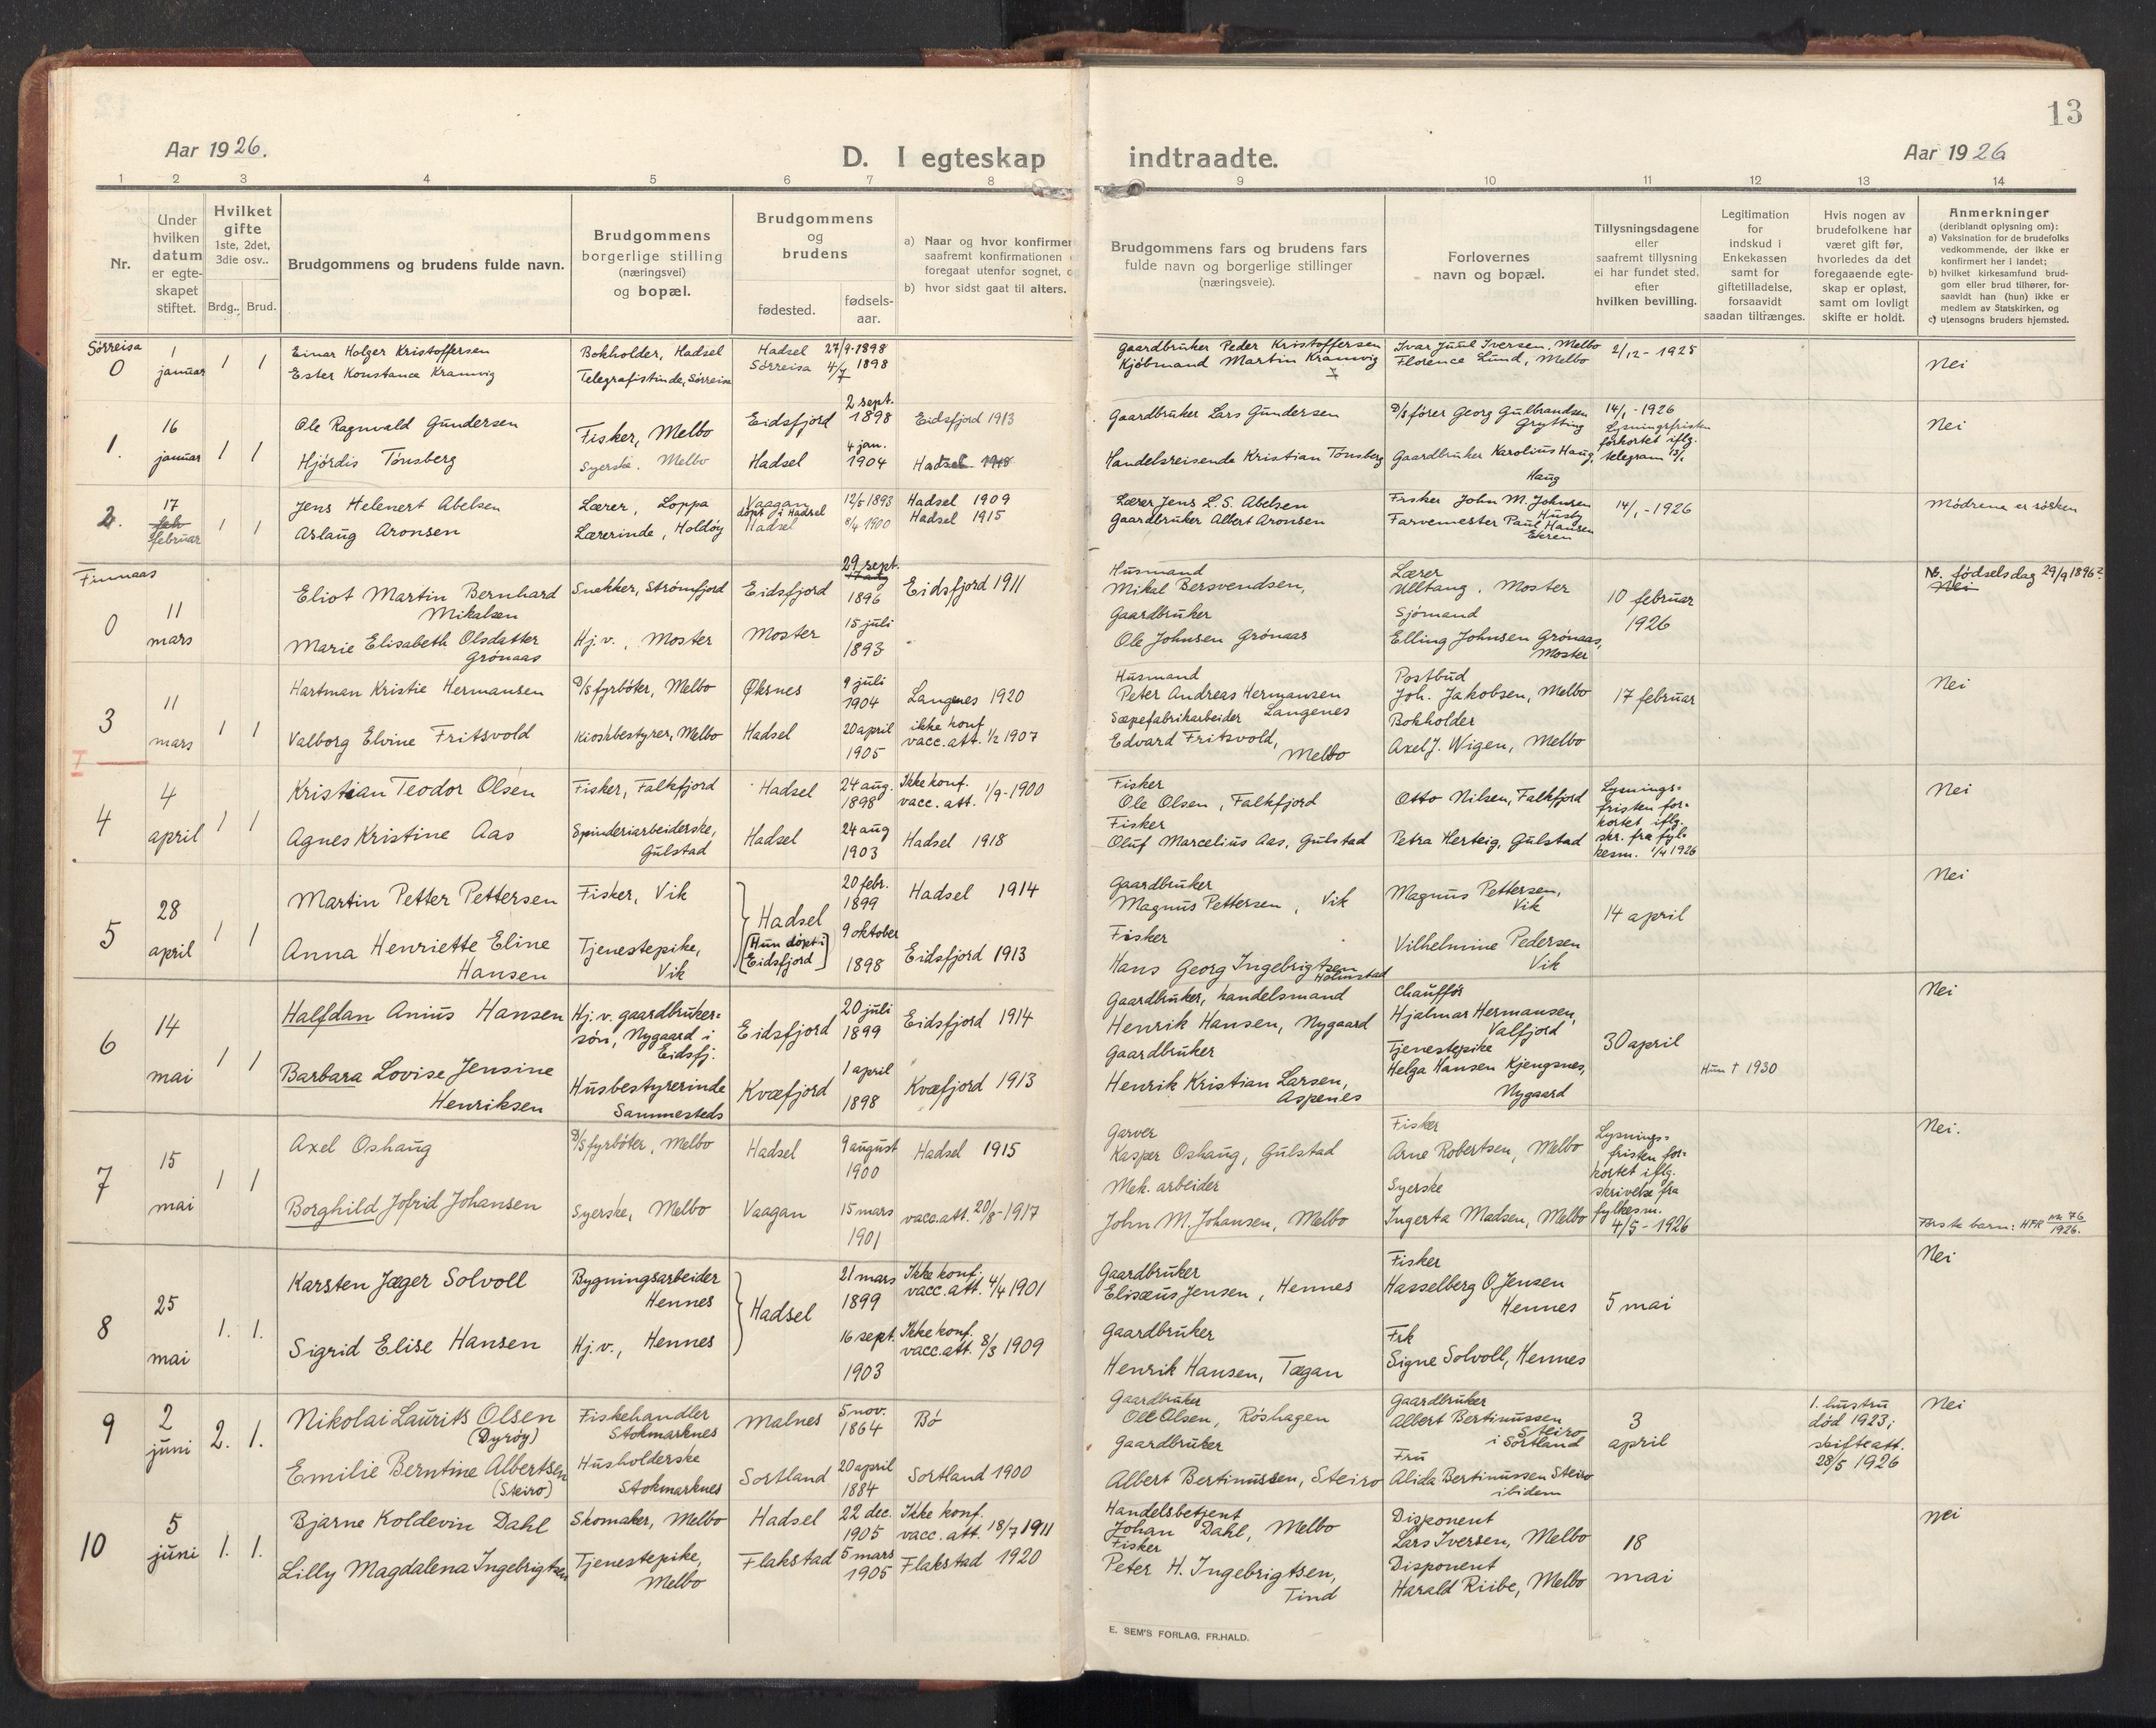 13
Aar 1926.
D. I egteskap indtraadte.
Aar 1926
1 2 3 4 5 6 7 8 9 10 11 12 13 14
Nr.
Under
hvilken
datum
er egte-
skapet
stiftet.
Hvilket
gifte
1ste, 2det,
3die osv..
Brdg.. Brud.
Brudgommens og brudens fulde navn.
Brudgommens
borgerlige stilling
(næringsvei)
og bopæl.
Brudgommens
og
brudens
fødested.
fødsels-
aar.
a) Naar og hvor konfirmer
saafremt konfirmationen
foregaat utenfor sognet, o
b) hvor sidst gaat til alters.
Brudgommens fars og brudens fars
fulde navn og borgerlige stillinger
(næringsveie).
Forlovernes
navn og bopæl.
Tillysningsdagene
eller
saafremt tillysning
ei har fundet sted,
efter
hvilken bevilling.
Legitimation
for
indskud i
Enkekassen
samt for
giftetilladelse,
forsaavidt
saadan tiltrænges.
Hvis nogen av
brudefolkene har
været gift før,
hvorledes da det
foregaaende egte-
skap er opløst,
samt om lovligt
skifte er holdt.
Anmerkninger
(deriblandt oplysning om):
a) Vaksination for de brudefolks
vedkommende, der ikke er
konfirmert her i landet;
b) hvilket kirkesamfund brud-
gom eller brud tilhører, for-
saavidt han (hun) ikke er
medlem av Statskirken, og
c) utensogns bruders hjemsted.
Sørreisa
0
1
januar
1 1
Einar Holger Kristoffersen
Ester Konstance Kramvig
Bokholder, Hadsel
Telegrafistinde, Sørreisa
Hadsel 27/9-1898
Sørreisa 4/7 1898
Gaardbruker Peder Kristoffersen
Kjøbmand Martin Kramvig
Ivar Juul Iversen, Melbo
Florence Lund, Melbo
2/12-1925
Nei
1.
16
januar
1 1
Ole Ragnvald Gundersen
Hjørdis Tønsberg
Fisker, Melbo
Syerske. Melbo
Eidsfjord
2 sept.
1898
Eidsfjord 1913
Hadsel
4 jan.
1904
Hadsel 1918
Gaardbruker Lars Gundersen
Handelsreisende Kristian Tønsberg
D/S fører Georg Gulbrandsen
Grytting
Gaardbruker Karolius Haug,
Haug
14/1-1926
Lysningsfristen
forkortet iflg.
telegram 13/1
Nei
2.
17
feb
februar
1 1
Jens Helenert Abelsen
Aslaug Aronsen
Lærer, Loppa
Lærerinde, Holdøy
Vaagan
døpt i Hadsel
Hadsel
12/5 1893
8/4 1900
Hadsel 1909
Hadsel 1915
Lærer Jens L.S. Abelsen
Gaardbruker Albert Aronsen
Fisker John M. Johnsen
Husby
Farvemester Paul Hansen
Ekren
14/1-1926
Mødrene er søsken
Finnaas
0
11
mars
Eliot Martin Bernhard
Mikalsen
Marie Elisabeth Olsdatter
Grönaas
Snekker, Strømfjord
Hj.v., Moster
Eidsfjord
Moster
29 sept.
17 aug
1896
15 juli
1893
Eidsfjord 1911
Husmand
Mikal Bersvendsen,
Gaardbruker
Ole Johnsen Grönaas
Lærer
Ulltang. Moster
Sjömand
Elling Johnsen Grönaas,
Moster
10 februar
1926
NB. fødselsdag 29/9 1896?
Nei
3
11
mars
1 1
Hartman Kristie Hermansen
Valborg Elvine Fritsvold
D/S fyrbøter, Melbo
Kioskbestyrer, Melbo
Øksnes
Hadsel
9 juli
1904
20 april
1905
Langenes 1920
ikke konf
vacc. att. 1/2 1907
Husmand
Peter Andreas Hermansen
Langenes
Sæpefabrikarbeider
Edvard Fritsvold,
Melbo
Postbud
Joh. Jakobsen, Melbo
Bokholder
Axel J. Wigen, Melbo
17 februar
Nei
I
4
4
april
1 1
Kristian Teodor Olsen
Agnes Kristine Aas
Fisker, Falkfjord
Spinderiarbeiderske,
Gulstad
Hadsel
Hadsel
24 aug.
1898
24 aug
1903
Ikke konf.
vacc. att. 1/9-1900
Hadsel 1918
Fisker
Ole Olsen, Falkfjord
Fisker
Oluf Marcelius Aas, Gulstad
Otto Nilsen, Falkfjord
Petra Herteig, Gulstad
Lysnings-
fristen for-
kortet iflg.
skr. fra fyl-
kesm. 1/4 1926
Nei
5
28
april
1 1
Martin Petter Pettersen
Anna Henriette Eline
Hansen
Fisker, Vik
Tjenestepike,
Vik
Hadsel
[Hun døpt i
Eidsfjord]
20 febr.
1899
9 oktober
1898
Hadsel 1914
Eidsfjord 1913
Gaardbruker
Magnus Pettersen, Vik
Fisker
Hans Georg Ingebrigtsen
Holmstad
Magnus Pettersen,
Vik
Vilhelmine Pedersen
Vik
14 april
Nei
6
14
mai
1 1
Halfdan Anius Hansen
Barbara Lovise Jensine
Henriksen
Hj.v. gaardbruker-
søn, Nygaard i
Eidsfj.
Husbestyrerinde
Sammesteds
Eidsfjord
Kvæfjord
20 juli
1899
1 april
1898
Eidsfjord 1914
Kvæfjord 1913
Gaardbruker, handelsmand
Henrik Hansen, Nygaard
Gaardbruker
Henrik Kristian Larsen,
Aspenes
Chauffør
Hjalmar Hermansen,
Valfjord
Tjenestepike
Helga Hansen Kjengsnes,
Nygaard
30 april
Hun † 1930
Nei
7
15
mai
1 1
Axel Oshaug
Borghild Jofrid Johansen
D/S fyrbøter, Melbo
Syerske, Melbo
Hadsel
Vaagan
9 august
1900
15 mars
1901
Hadsel 1915
vacc. att. 20/8-1917
Garver
Kasper Oshaug, Gulstad
Mek. arbeider
John M. Johansen, Melbo
Fisker
Arne Robertsen, Melbo
Syerske
Ingerta Madsen, Melbo
Lysnings-
fristen for-
kortet iflg.
skrivelse fra
fylkesm.
4/5-1926
Nei.
Første barn: HFR nr. 76
1926.
8
25
mai
1. 1.
Karsten Jæger Solvoll
Sigrid Elise Hansen
Bygningsarbeider
Hennes
Hj.v., Hennes
Hadsel
21 mars
1899
16 sept.
1903
Ikke konf.
vacc. att. 4/4 1901
Ikke konf.
vacc. att. 8/3 1909
Gaardbruker
Elisæus Jensen, Hennes
Gaardbruker
Henrik Hansen, Tægan
Fisker
Hasselberg O. Jensen
Hennes
Frk
Signe Solvoll, Hennes
5 mai
Nei
9
2
juni
2. 1.
Nikolai Laurits Olsen
(Dyrøy)
Emilie Berntine Albertsen
(Steiro)
Fiskehandler
Stokmarknes
Husholderske
Stokmarknes
Malnes
Sortland
5 nov.
1864
20 april
1884
Bø
Sortland 1900
Gaardbruker
Ole Olsen, Røshagen
Gaardbruker
Albert Bertinussen, Steiro
Gaardbruker
Albert Bertinussen
Steiro
i Sortland
Fru
Alida Bertinussen Steiro
ibidem
3
april
1. hustru
død 1923;
skifteatt.
28/5 1926
Nei
10
5
juni
1. 1.
Bjarne Koldevin Dahl
Lilly Magdalena Ingebrigtsen
Skomaker, Melbo
Tjenestepike,
Melbo
Hadsel
Flakstad
22 dec.
1905
5 mars
1905
Ikke konf.
vacc. att. 18/7 1911
Flakstad 1920
Handelsbetjent
Johan Dahl, Melbo
Fisker
Peter H. Ingebrigtsen,
Tind
Disponent
Lars Iversen, Melbo
Disponent
Harald Riibe, Melbo
18
mai
nei
E. SEM'S FORLAG, FR.HALD.